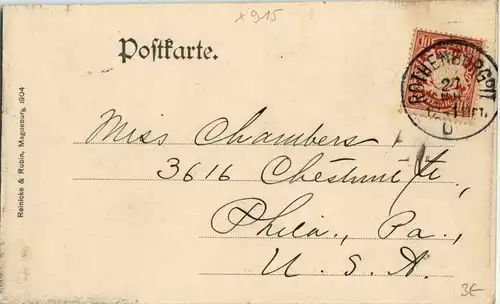 x915
Postkarte.
10
ROTHENBURG o/T
27
Miss Chambers
3616 Chestnut,
Phila., Pa.,
U. S. A.
Reinicke & Rubin, Magdeburg. 1904
3€